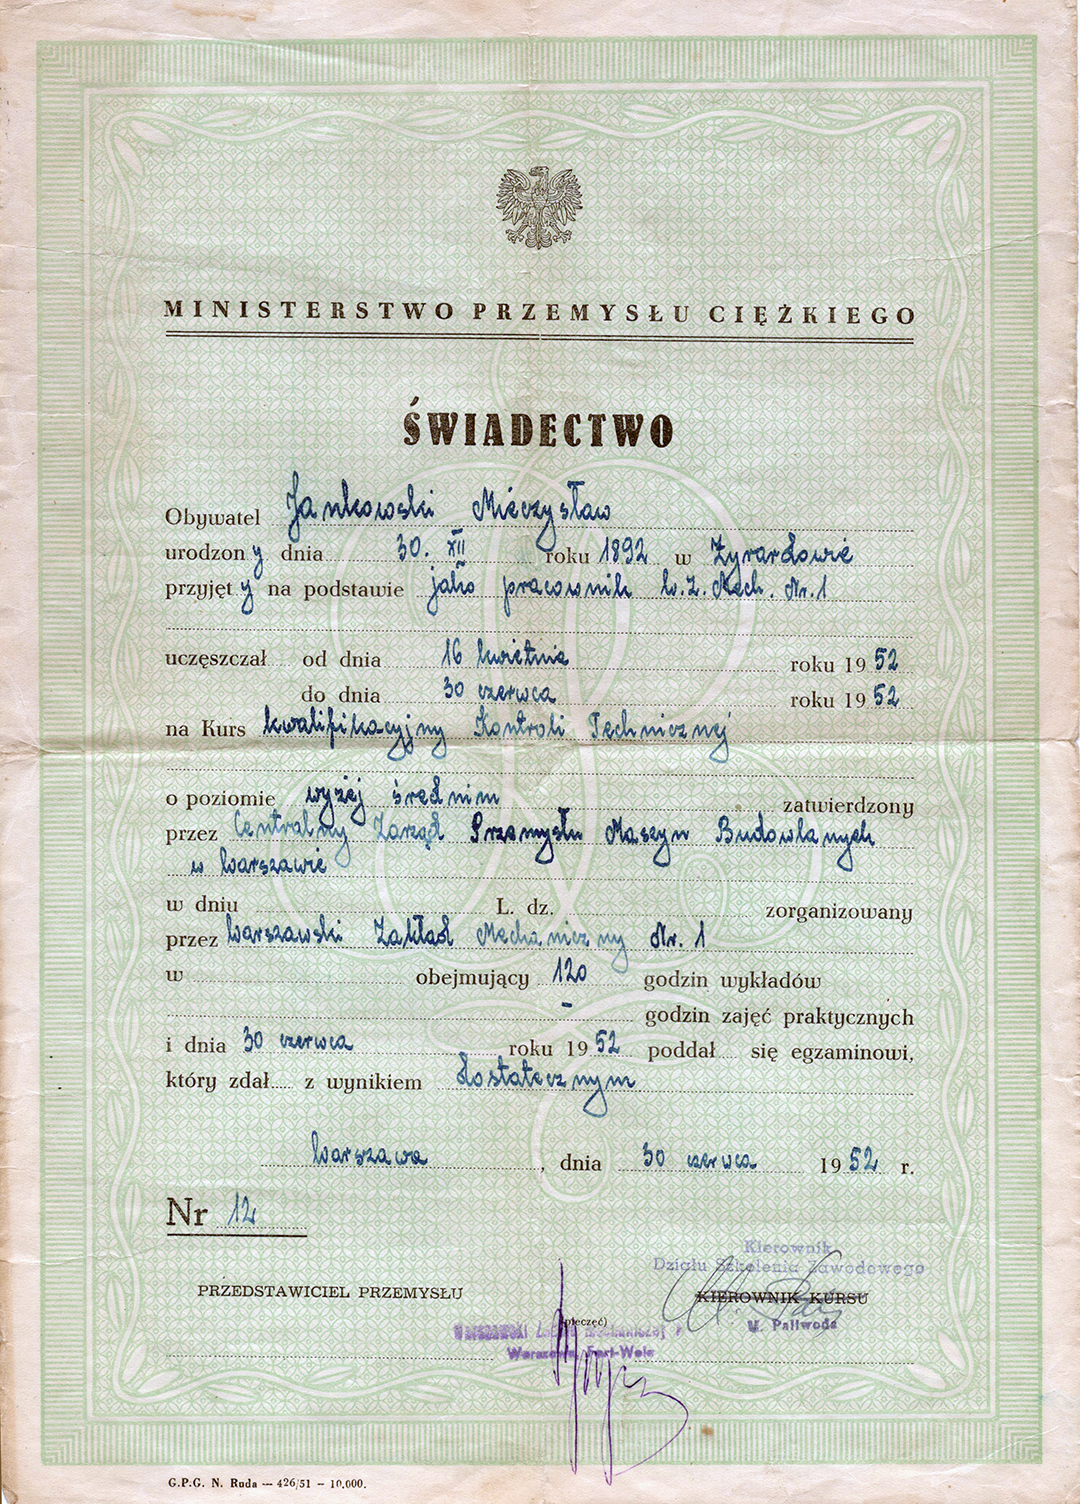 MINISTERSTWO PRZEMYSŁU CIĘŻKIEGO
ŚWIADECTWO
Obywatel Jankowski Mieczysław
urodzony dnia 30. XII roku 1892 w Żyrardowie
przyjęty na podstawie jako pracownik W.Z. Mech. Nr. 1
uczęszczał od dnia 16 kwietnia roku 1952
do dnia 30 czerwca roku 1952
na Kurs kwalifikacyjny Kontroli Technicznej
o poziomie wyżej średnim zatwierdzony
przez Centralny Zarząd Przemysłu Maszyn Budowlanych
w Warszawie
w dniu L. dz. zorganizowany
przez Warszawski Zakład Mechaniczny Nr. 1
w obejmujący 120 godzin wykładów
- godzin zajęć praktycznych
i dnia 30 czerwca roku 1952 poddał się egzaminowi,
który zdał z wynikiem dostatecznym
Warszawa, dnia 30 czerwca 1952 r.
Nr 12
Kierownik
Działu Szkolenia Zawodowego
PRZEDSTAWICIEL PRZEMYSŁU KIEROWNIK KURSU
(pieczęć) W. Paliwoda
Warszawski
Warszawa, Fort-Wola
G.P.G. N. Ruda — 426/51 — 10.000.